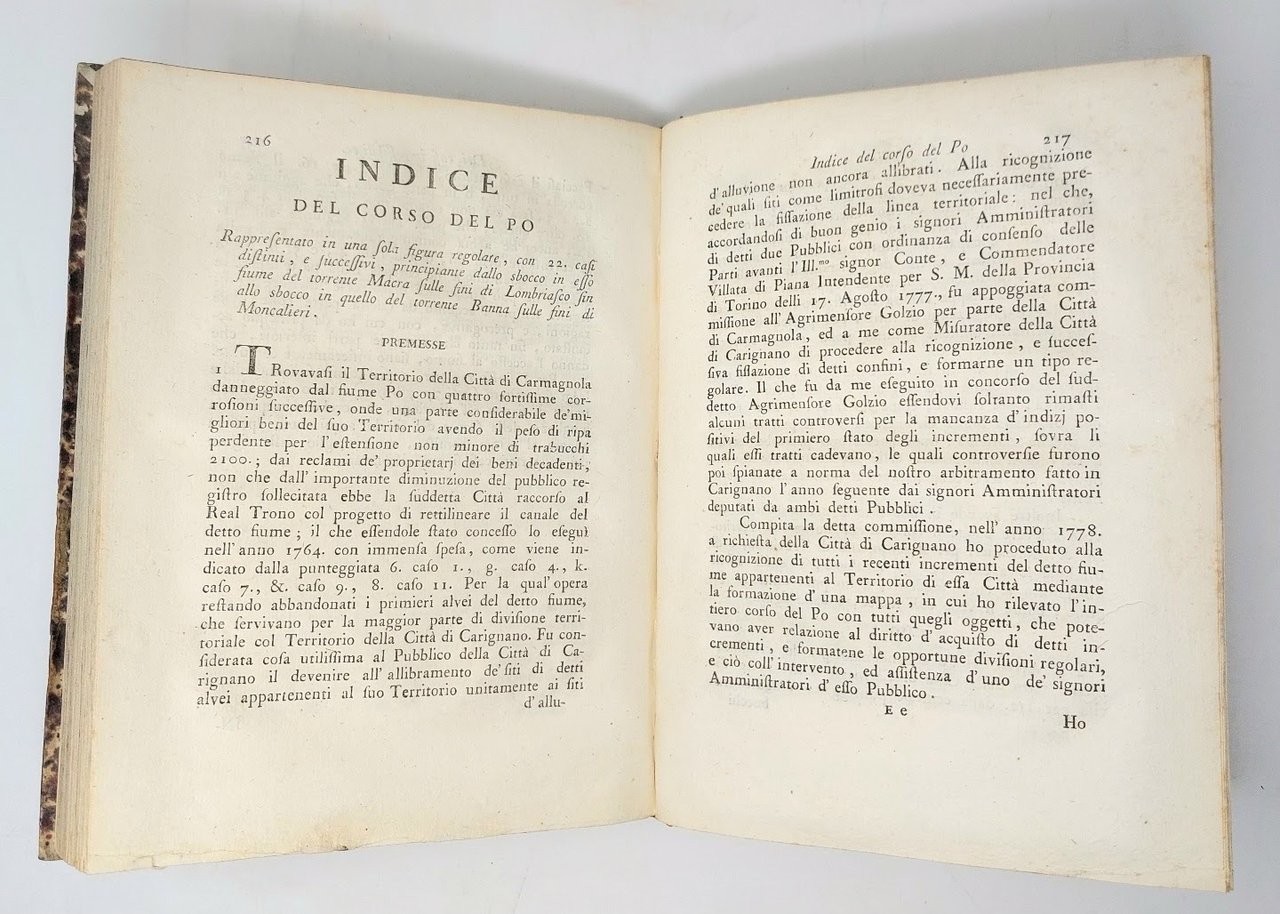 216
INDICE
DEL CORSO DEL PO
Rappreſentato in una ſola figura regolare, con 22. caſi
diſtinti, e ſucceſſivi, principiante dallo sbocco in eſſo
fiume del torrente Macra ſulle fini di Lombriaſco ſin
allo sbocco in quello del torrente Banna ſulle fini di
Moncalieri.
PREMESSE
1 TRovavaſi il Territorio della Città di Carmagnola
danneggiato dal fiume Po con quattro fortiſſime cor-
roſioni ſucceſſive, onde una parte conſiderabile de'mi-
gliori beni del ſuo Territorio avendo il peſo di ripa
perdente per l'eſtenſione non minore di trabucchi
2100.; dai reclami de' proprietarj dei beni decadenti,
non che dall'importante diminuzione del pubblico re-
giſtro ſollecitata ebbe la ſuddetta Città raccorſo al
Real Trono col progetto di rettilineare il canale del
detto fiume; il che eſſendole ſtato conceſſo lo eſeguì
nell'anno 1764. con immenſa ſpeſa, come viene in-
dicato dalla punteggiata 6. caſo 1., g. caſo 4., k.
caſo 7., &. caſo 9., 8. caſo 11. Per la qual'opera
reſtando abbandonati i primieri alvei del detto fiume,
che ſervivano per la maggior parte di diviſione terri-
toriale col Territorio della Città di Carignano. Fu con-
ſiderata coſa utiliſſima al Pubblico della Città di Ca-
rignano il devenire all'allibramento de'ſiti di detti
alvei appartenenti al ſuo Territorio unitamente ai ſiti
d'allu-
Indice del corſo del Po
217
d'alluvione non ancora allibrati. Alla ricognizione
de'quali ſiti come limitrofi doveva neceſſariamente pre-
cedere la fiſſazione della linea territoriale: nel che,
accordandoſi di buon genio i signori Amminiſtratori
di detti due Pubblici con ordinanza di conſenſo delle
Parti avanti l'Ill.mo signor Conte, e Commendatore
Villata di Piana Intendente per S. M. della Provincia
di Torino delli 17. Agoſto 1777., fu appoggiata com-
miſſione all'Agrimenſore Golzio per parte della Città
di Carmagnola, ed a me come Miſuratore della Città
di Carignano di procedere alla ricognizione, e ſucceſ-
ſiva fiſſazione di detti confini, e formarne un tipo re-
golare. Il che fu da me eſeguito in concorſo del ſud-
detto Agrimenſore Golzio eſſendovi ſoltanto rimaſti
alcuni tratti controverſi per la mancanza d'indizj po-
ſitivi del primiero ſtato degli incrementi, ſovra li
quali eſſi tratti cadevano, le quali controverſie furono
poi ſpianate a norma del noſtro arbitramento fatto in
Carignano l'anno ſeguente dai signori Amminiſtratori
deputati da ambi detti Pubblici.
Compita la detta commiſſione, nell'anno 1778.
a richieſta della Città di Carignano ho proceduto alla
ricognizione di tutti i recenti incrementi del detto fiu-
me appartenenti al Territorio di eſſa Città mediante
la formazione d'una mappa, in cui ho rilevato l'in-
tiero corſo del Po con tutti quegli oggetti, che pote-
vano aver relazione al diritto d'acquiſto di detti in-
crementi, e formatene le opportune diviſioni regolari,
e ciò coll'intervento, ed aſſiſtenza d'uno de' signori
Amminiſtratori d'eſſo Pubblico.
E e
Ho